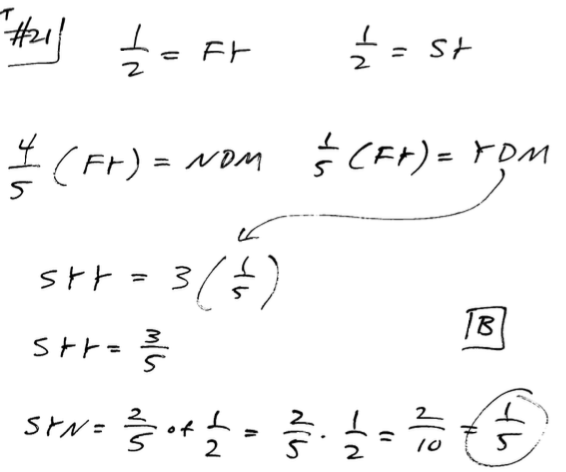 T
#21
1/2 = Fr 1/2 = Sr
4/5 (Fr) = NDM 1/5 (Fr) = YDM
SrY = 3(1/5)
SrY = 3/5
SrN = 2/5 of 1/2 = 2/5 · 1/2 = 2/10 = 1/5
B